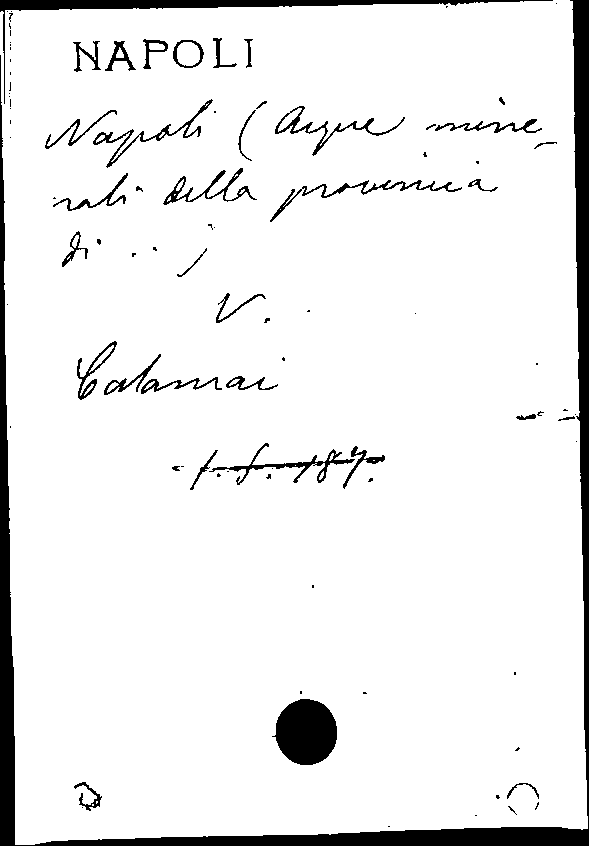 NAPOLI
Napoli (Acque mine-
rali della provincia
di ...)
V.
Calamai
1. S. 187.